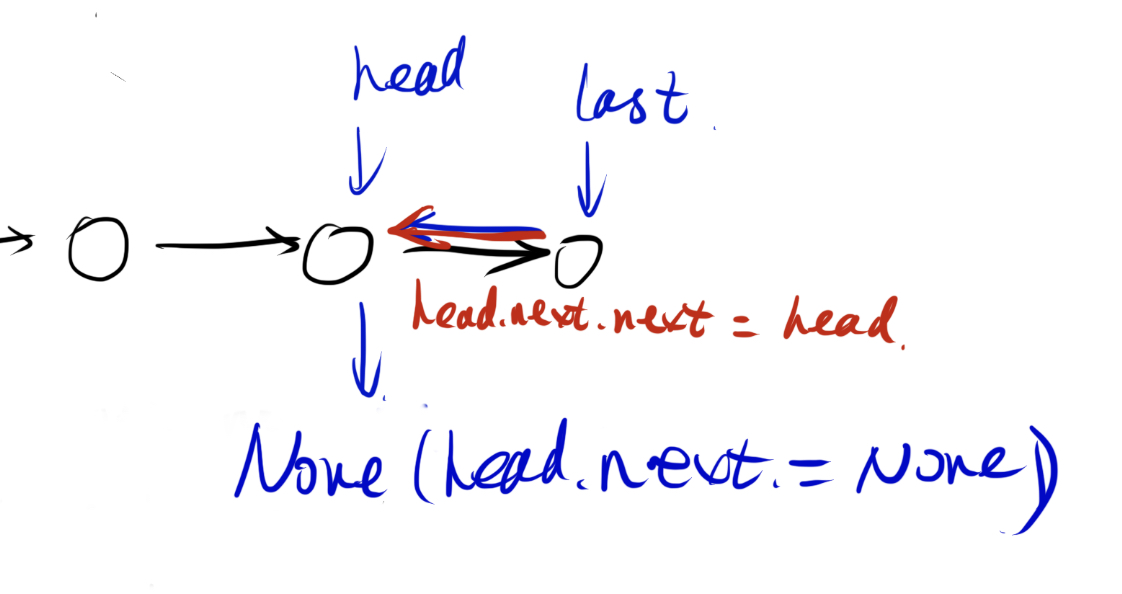 head
last
head.next.next = head.
None (head.next.= None)